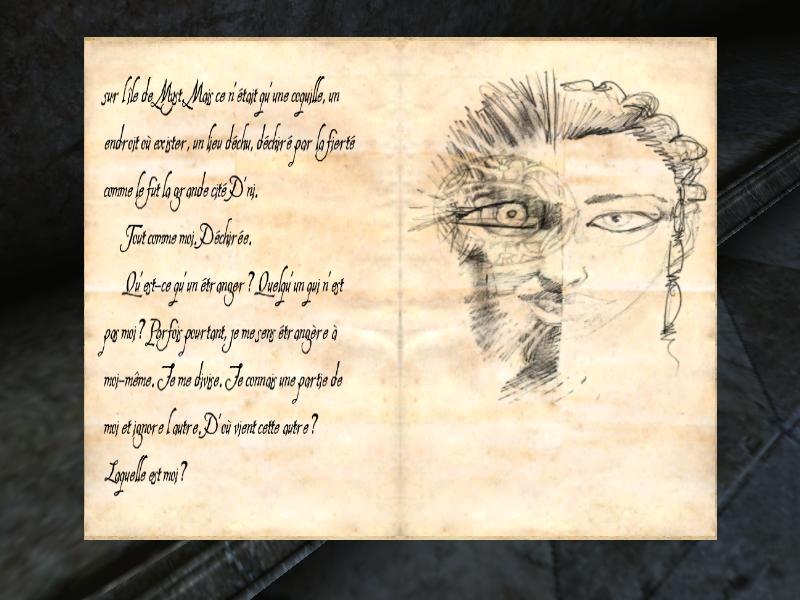 sur l'île de Myst. Mais ce n'était qu'une coquille, un
endroit où exister, un lieu déchu, déchiré par la fierté
comme le fut la grande cité D'ni.
Tout comme moi. Déchirée.
Qu'est-ce qu'un étranger ? Quelqu'un qui n'est
pas moi ? Parfois pourtant, je me sens étrangère à
moi-même. Je me divise. Je connais une partie de
moi et ignore l'autre. D'où vient cette autre ?
Laquelle est moi ?